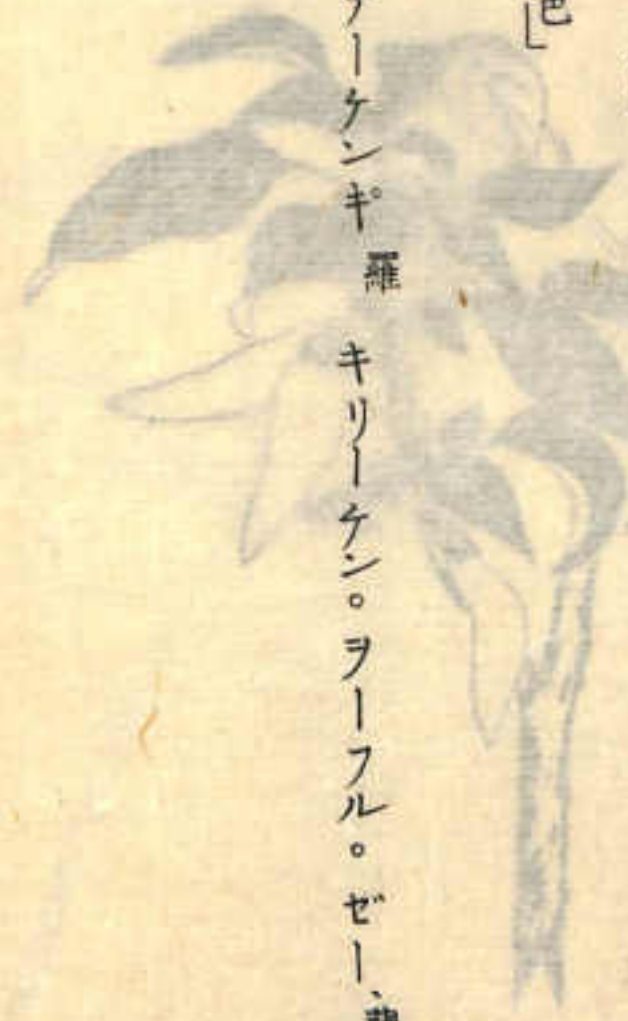 」
ーケンキ゚ 羅 キリーケン。ヲーフル。ゼー、